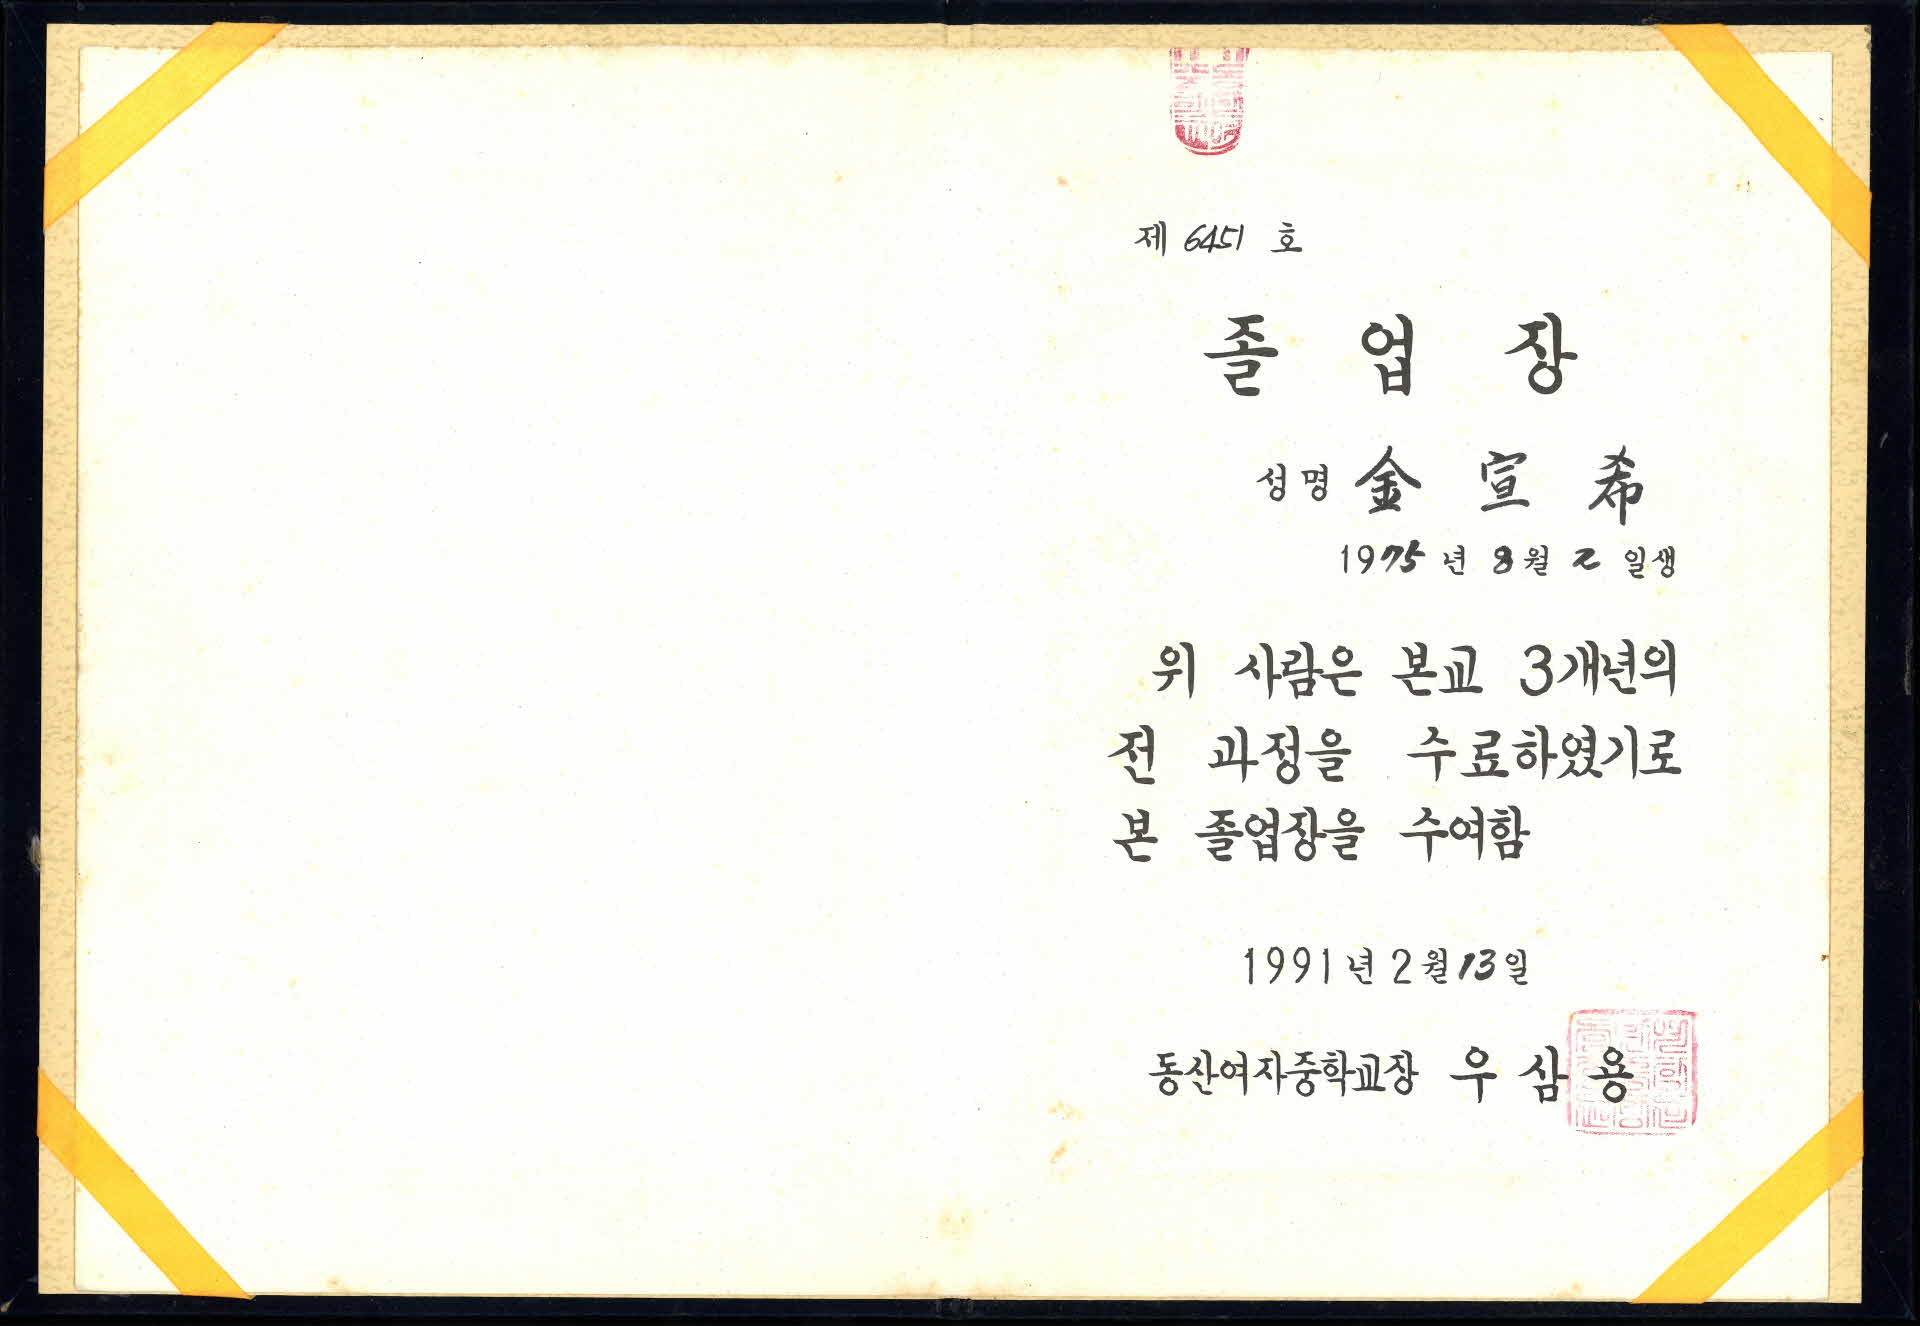 제 6451 호
졸 업 장
성명 金 宣 希
1975 년 8 월 2 일생
위 사람은 본교 3개년의
전 과정을 수료하였기로
본 졸업장을 수여함
1991 년 2 월 13 일
동산여자중학교장 우 삼 용